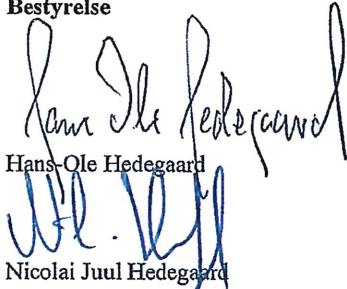 Bestyrelse
Hans Ole Hedegaard
Hans-Ole Hedegaard
Nicolai Juul Hedegaard